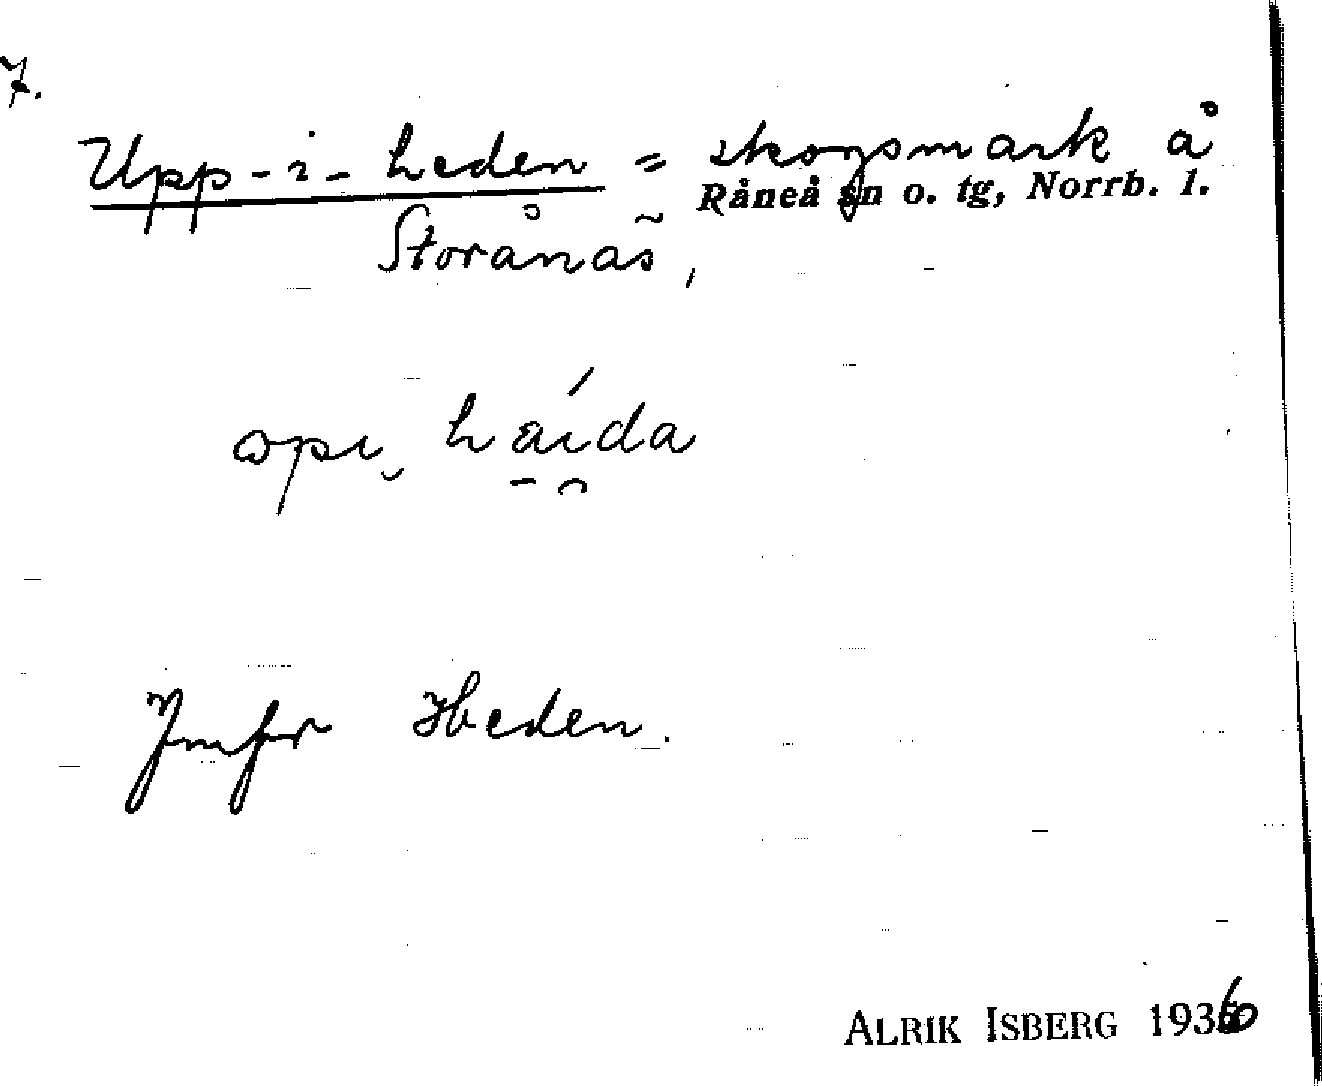 7.
Upp-i-heden = skogsmark å
Råneå sn o. tg, Norrb. l.
Storånäs,
opi haida
Jmfr Heden.
ALRIK ISBERG 1936